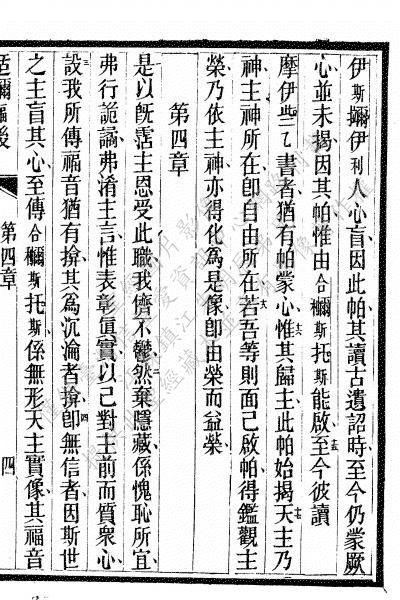 伊斯彌伊利人心盲因此帕其讀古遺詔時至今仍蒙厥
心並未揭因其帕惟由合彌斯托斯能啟至今彼讀
摩伊些乙書者猶有帕蒙心惟其歸主此帕始揭天主乃
神主神所在卽自由所在若吾等則面己啟帕得鑑觀主
榮乃依主神亦得化為是像卽由榮而益榮
第四章
是以旣霑主恩受此職我儕不鬱然棄隱藏係愧恥所宜
弗行詭譎弗淆主言惟表彰眞實以己對主前而質衆心
設我所傳福音猶有揜其為沉淪者揜卽無信者因斯世
之主盲其心至傳合彌斯托斯係無形天主實像其福音
第四章
四